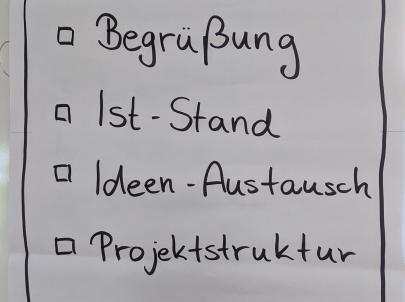 Begrüßung
Ist-Stand
Ideen-Austausch
Projektstruktur